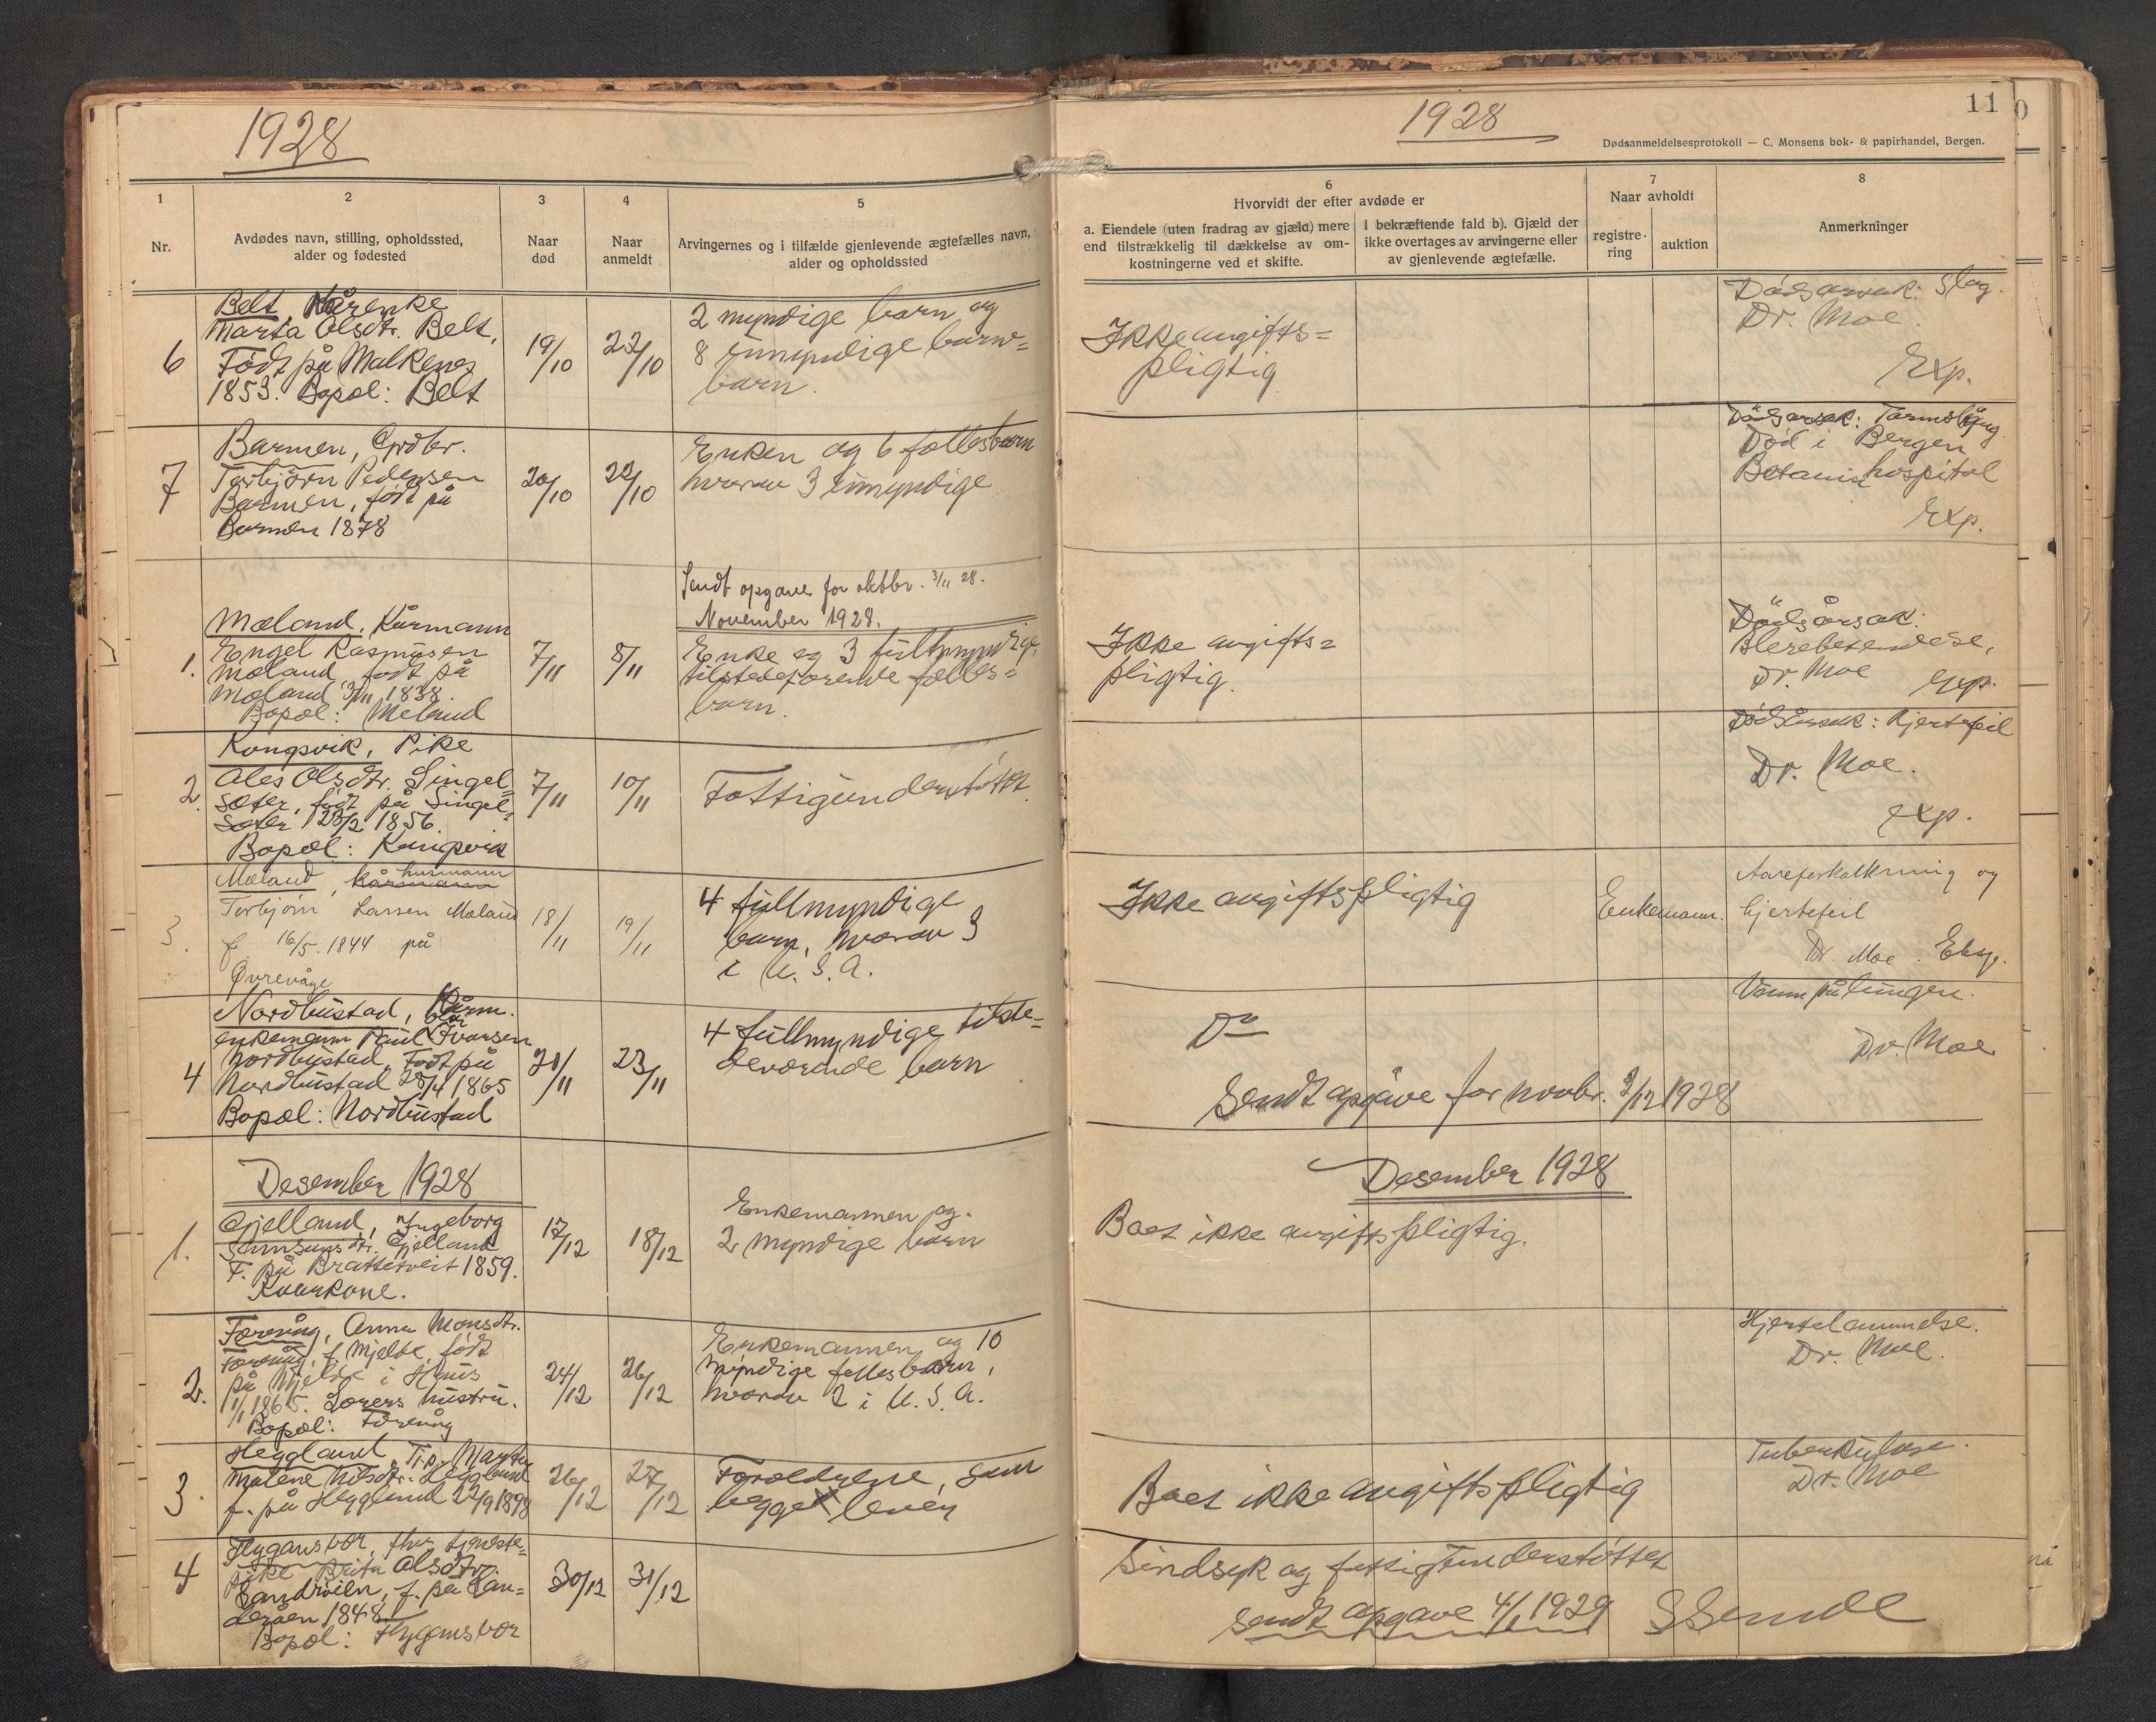 1928
1
2
3
4
5
Nr.
Avdødes navn, stilling, opholdssted,
alder og fødested
Naar
død
Naar
anmeldt
Arvingernes og i tilfælde gjenlevende ægtefælles navn,
alder og opholdssted
6
Belt, Kårenke
Marta Olsdtr. Belt,
Født på Malkenes
1853. Bopæl: Belt
19/10
22/10
2 myndige barn og
8 umyndige barne=
barn.
7
Barmen, Grdbr.
Torbjörn Pedersen
Barmen, født på
Barmen 1878
20/10
22/10
Enken og 6 fellesbarn
hvorav 3 umyndige
Sendt opgave for oktbr. 3/11 28.
November 1928.
1.
Mæland, Kårmann
Engel Rasmusen
Mæland, født på
Mæland 3/11 1838.
Bopæl: Meland
7/11
8/11
Enke og 3 fullmyndige
tilstedeværende felles=
barn.
2.
Kongsvik, Pike
Ales Olsdtr. Singel=
sæter, født på Singel=
sæter 23/2 1856.
Bopæl: Kongsvik
7/11
10/11
Fattigunderstöttet.
3.
Mæland, kårmann husmann
Torbjörn Larsen Mæland
f. 16/5. 1844 på
Øvrevåge
18/11
19/11
4 fullmyndige
barn, hvorav 3
i U.S.A.
4
Nordhustad, Kårm.
enkemann Paul Ivarsen
Nordhustad, Født på
Nordhustad 28/4 1865
Bopæl: Nordhustad
21/11
23/11
4 fullmyndige tilste=
deværende barn
Desember 1928
1.
Gjelland, Ingeborg
Samsonsdtr. Gjelland
F. på Brattetveit 1859.
Kaarkone.
17/12
18/12
Enkemannen og
2 myndige barn
2.
Færevåg, Anna Monsdtr.
Færevåg, f. Mjelde, født
på Mjelde i Haus
1/11 1865. Lærers hustru.
Bopæl: Færevåg
24/12
26/12
Enkemannen og 10
myndige fellesbarn,
hvorav 2 i U.S.A.
3.
Heggland, Pike Marta
Malene Nilsdtr. Heggland
f. på Heggland 22/9 1898
26/12
27/12
Foreldrene, som
begge lever
4
Flygansvær, fhv. tjeneste=
pike Brita Olsdtr.
Sandviken, f. på San=
deråen 1848
Bopæl: Flygansvær
30/12
31/12
1928
11
Dødsanmeldelsesprotokoll — C. Monsens bok- & papirhandel, Bergen.
6
Hvorvidt der efter avdøde er
a. Eiendele (uten fradrag av gjæld) mere
end tilstrækkelig til dækkelse av om-
kostningerne ved et skifte.
I bekræftende fald b). Gjæld der
ikke overtages av arvingerne eller
av gjenlevende ægtefælle.
7
Naar avholdt
registre-
ring
auktion
8
Anmerkninger
Ikke avgifts=
pligtig
Dödsarsak: Slag.
Dr. Moe.
Exp.
Dödsarsak: Tarmslyng
Död i Bergen
Betanien hospital
Exp.
Ikke avgifts=
pligtig.
Dödsårsak:
Blerebetendelse,
Dr. Moe
Exp.
Dödsårsak: Hjertefeil
Dr. Moe.
Exp.
Ikke avgiftspligtig
Enkemann.
Aareforkalkning og
hjertefeil
Dr. Moe. Eksp.
Do
Vann på lungen.
Dr. Moe
Sendt opgave for novbr. 3/12 1928
Desember 1928
Boet ikke avgiftspligtig.
Hjertelammelse.
Dr. Moe.
Boet ikke avgiftspligtig
Tuberkulose.
Dr. Moe
Sindsyk og fattigunderstöttet
Sendt opgave 4/1 1929